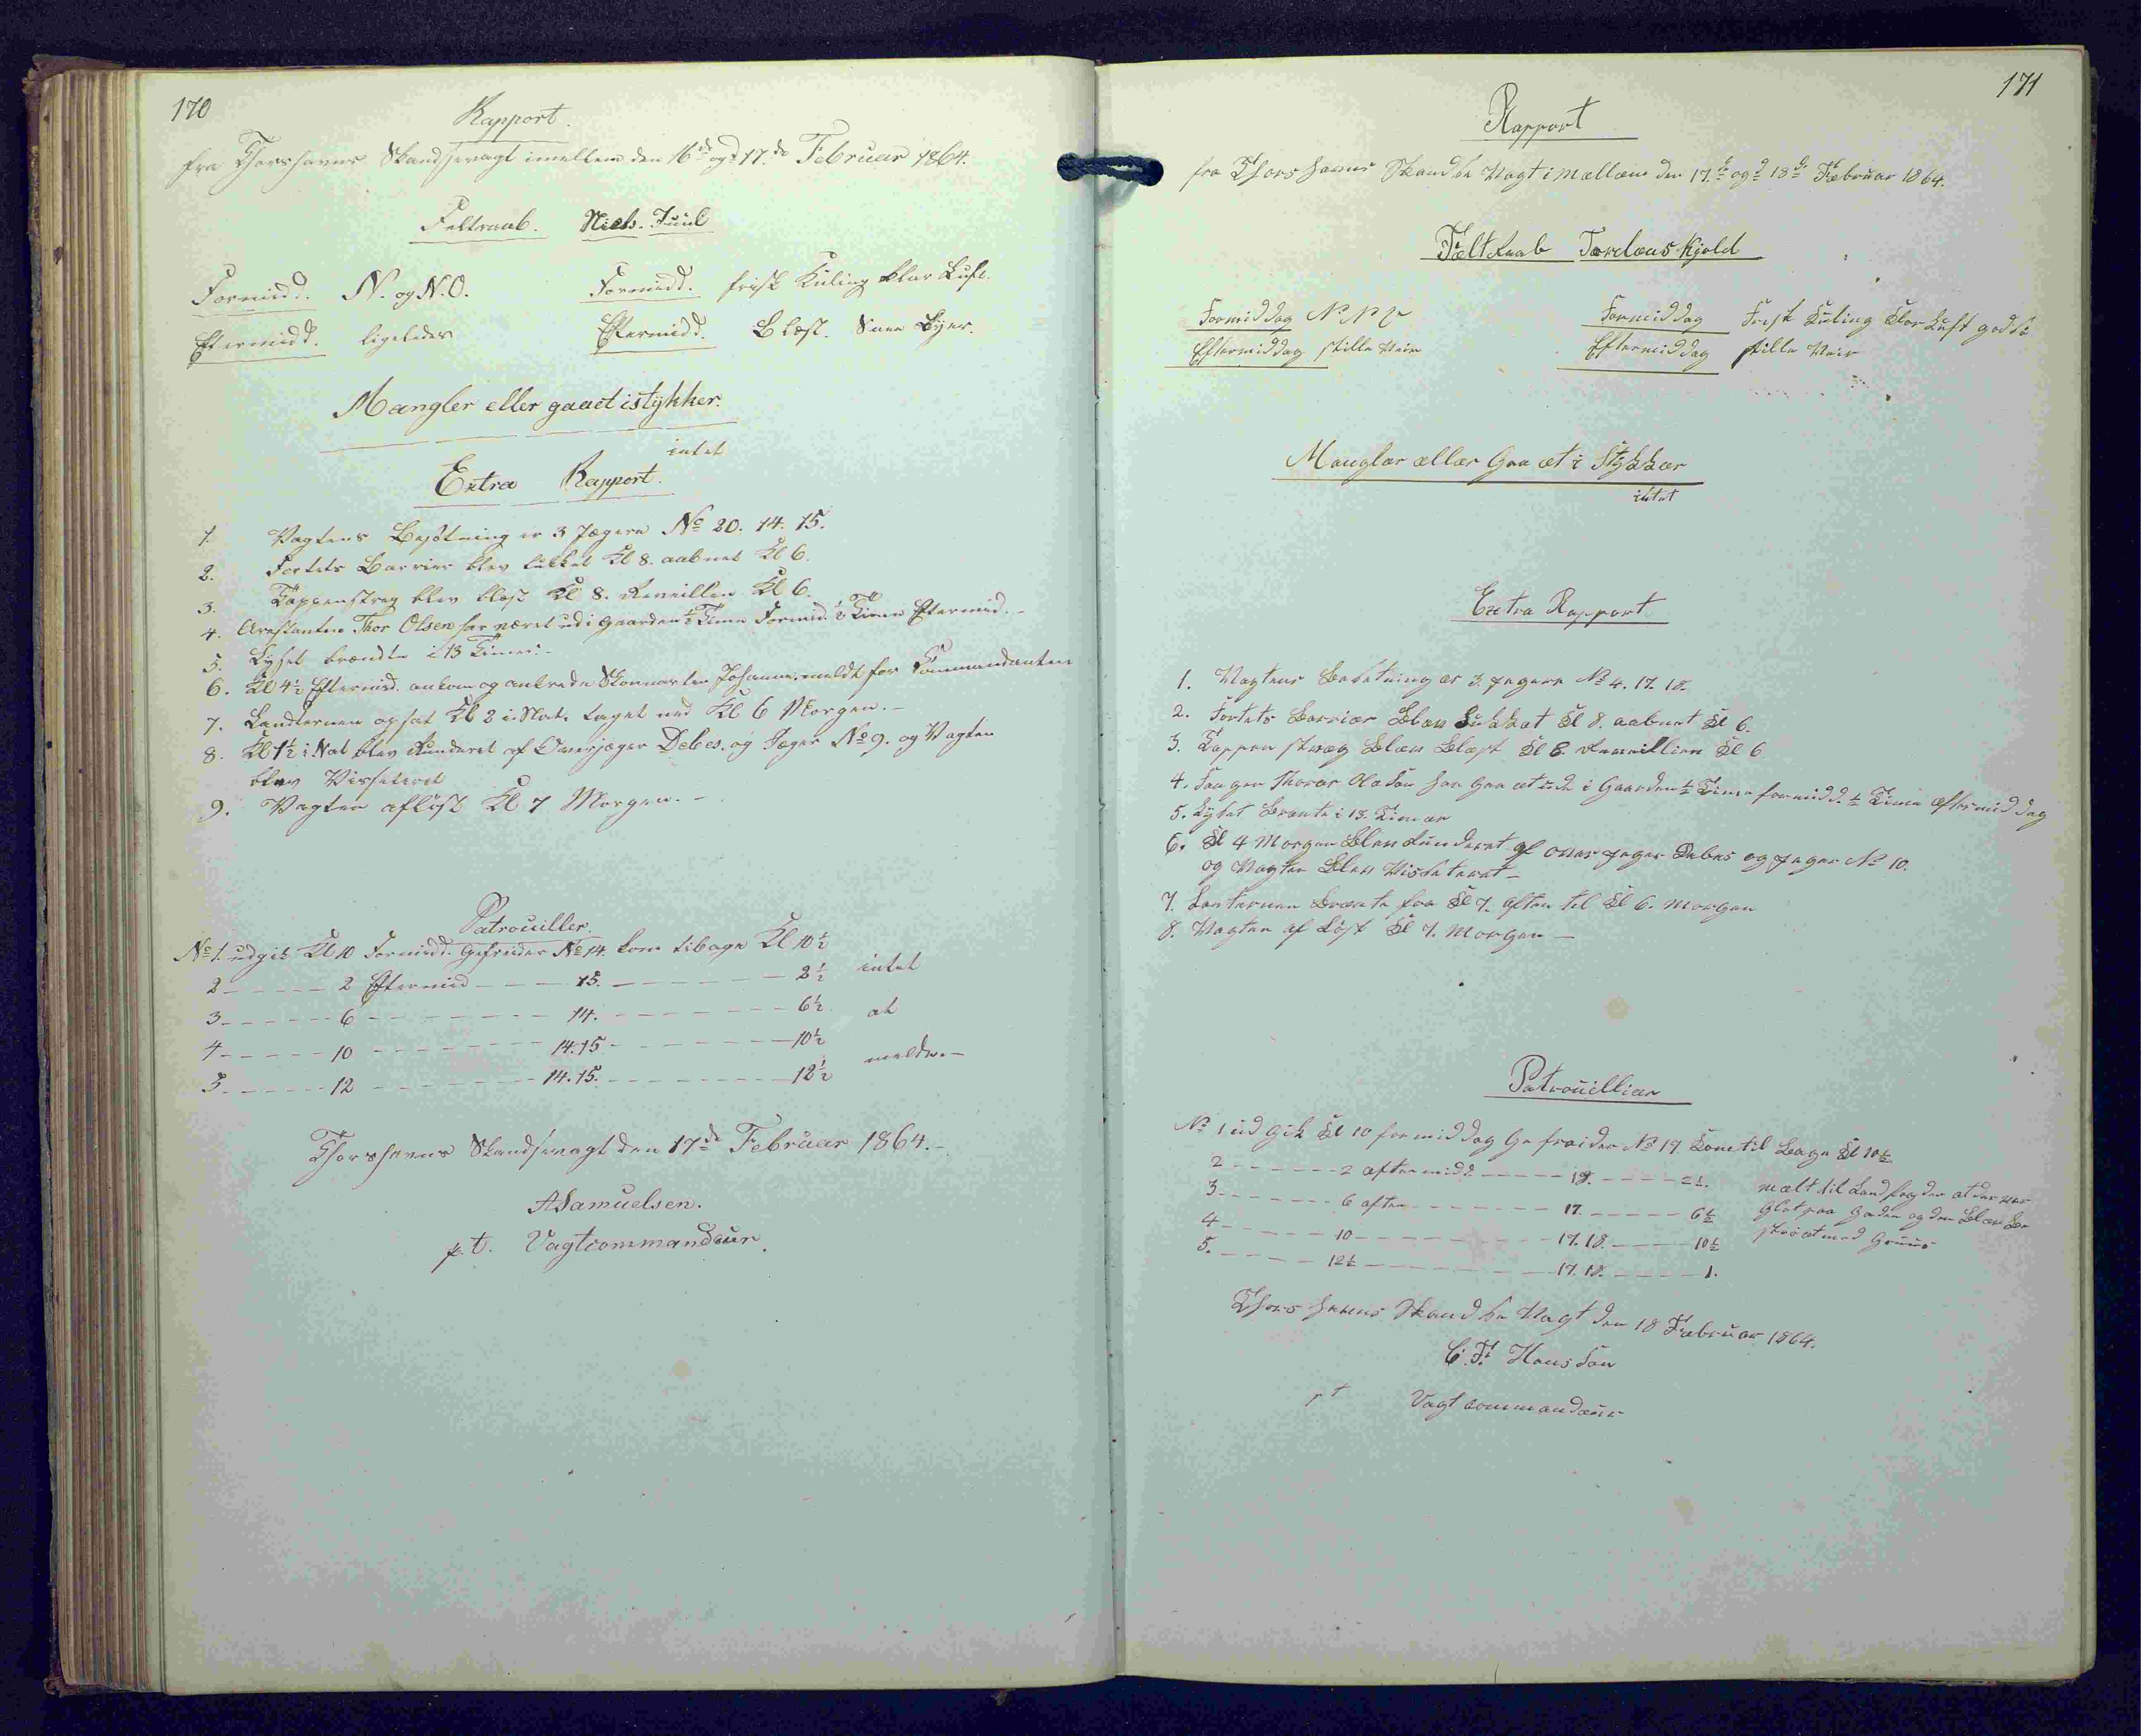 170
Rapport.
fra Thorshavns Skandsevagt imellem den 16de og 17de Februar 1864.
Feltraab. Niels. Juul
Formidd. N. og N.O. Formidd. frisk Kuling klar Luft.
Eftermidd. ligeledes Eftermidd. Blæst. Snee Byer.
Mangler eller gaaet istykker.
intet
Extra Rapport.
1. Vagtens Besætning er 3 Jægere No 20. 14. 15.
2. Fortets Barrier blev lukket Kl 8. aabnet Kl 6.
3. Tappenstreg blev blæst Kl 8. Reveillen Kl 6.
4. Arestanten Thor Olsen har været ud i Gaarden ½ Time Formid. ½ Time Eftermid.-
5. Lyset brændte i 13 Timer.-
6. Kl 4½ Eftermid. ankom og ankrede Skonnerten Johanne. meldt for Commandanten
7. Lanternen opsat Kl 2 i Nat. taget ned Kl 6 Morgen.-
8. Kl 1½ i Nat blev Runderet af Overjæger Debes. og Jæger No 9. og Vagten
blev Visseteret
9. Vagten afløst Kl 7 Morgen.-
Patrouiller.
No 1. udgik Kl 10 Formidd. Gefreider No 14. kom tibage Kl 10½
2 - - - - - 2 Eftermid - - - 15. - - - - - - - 2½ intet
3 - - - - - 6 - - - - - - - - 14. - - - - - - - 6½ at
4 - - - - - 10 - - - - - - - 14.15 - - - - - - - 10½
5 - - - - - 12 - - - - - - - 14.15. - - - - - - - 12½ melde.-
Thorshavns Skandsevagt den 17de Februar 1864.-
ASamuelsen.
p. t. Vagtcommandeur.
171
Rapport
fra Thorshavns Skandse Vagt i Mellem den 17de og 18de Februar 1864.
Felt Raab Tordenskjold
Formiddag N N V Formiddag Frisk Kuling Klar Luft
Eftermiddag stille Veir Eftermiddag stille Veir
Mangler æller Gaa et i Stykker
intet
Extra Rapport
1. Vagtens Besetning er 3. jegere No 4. 17. 18.
2. Fortets Barrier Blev Lukket Kl 8. aabnet Kl 6.
3. Tappen streg Blev Blæst Kl 8. Reveillien Kl 6
4. Fangen Thorer Olesen har Gaa et ude i Gaarden ½ Time formidd. ½ Time æftermiddag
5. Lyset Brente i 13. Timer
6. Kl 4 Morgen Blev Runderet af over jeger Debes og jeger No 10.
og Vagten Blev Visseteret –
7. Lanternen Brænte fra Kl 7. Aften til Kl 6. Morgen
8. Vagten af Løst Kl 7. Morgen –
Patrouillier
No 1 ud Gik Kl 10 formiddag Gefreider No 17. Kom til Bage Kl 10½
2 - - - - - - 2 æftermidd. - - - - 18. - - - - 2½. mælt til Landfogden at der var
3 - - - - - - 6 aften - - - - - - 17. - - - - - 6½ Glat paa Gaden og den Blev Be
4 - - - - - - 10 - - - - - - - - 17. 18. - - - - 10½ strøet med Gruus
5. - - - - - 12½ - - - - - - - - 17. 18. - - - - 1.
Thors havns Skandse Vagt den 18 Februar 1864.
C. F. Hansen
p t Vagt commandeur